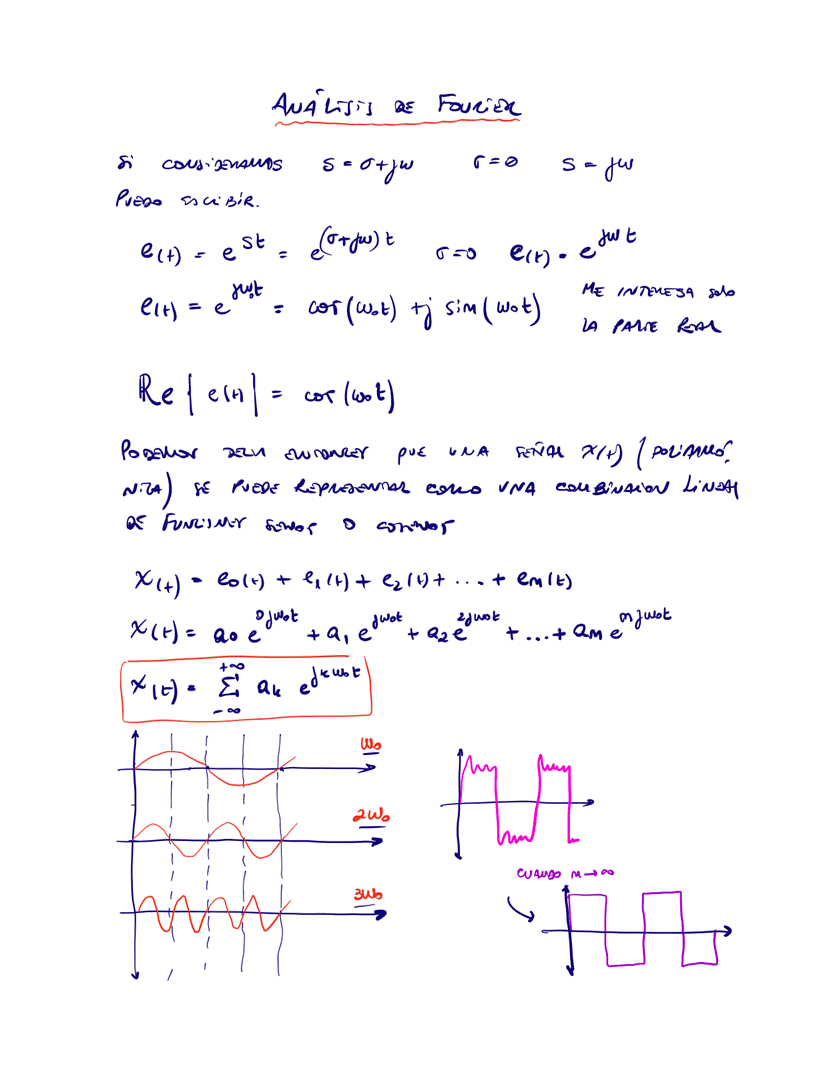 ANÁLISIS DE FOURIER
SI CONSIDERAMOS S = σ+jω σ=0 S = jω
PUEDO ESCRIBIR.
e(t) = e^{st} = e^{(σ+jω)t} σ=0 e(t) = e^{jωt}
e(t) = e^{jω₀t} = cos(ω₀t) + j sin(ω₀t) ME INTERESA SOLO
LA PARTE REAL
Re{e(t)} = cos(ω₀t)
PODEMOS DECIR ENTONCES QUE UNA SEÑAL X(t) (POLIARMÓ-
NICA) SE PUEDE REPRESENTAR COMO UNA COMBINACION LINEAL
DE FUNCIONES SENOS O COSENOS
x(t) = e₀(t) + e₁(t) + e₂(t) + ... + eₙ(t)
x(t) = a₀ e^{0jω₀t} + a₁ e^{jω₀t} + a₂ e^{2jω₀t} + ... + aₙ e^{njω₀t}
x(t) = Σ_{-∞}^{+∞} aₖ e^{jkω₀t}
ω₀
2ω₀
CUANDO n→∞
3ω₀